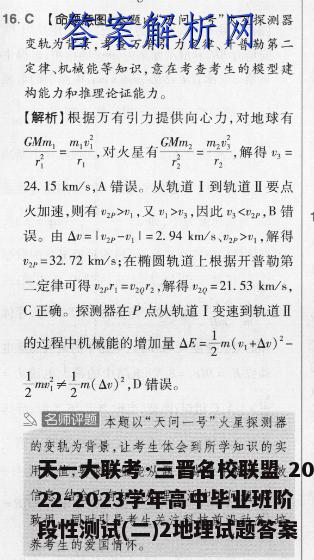 16. C 【命题意图】本题以“天问一号”火星探测器
答案解析网
变轨为背景，考查万有引力定律、开普勒第二
定律、机械能等知识，意在考查考生的模型建
构能力和推理论证能力。
【解析】根据万有引力提供向心力，对地球有
GMm₁/r₁² = m₁v₁²/r₁，对火星有 GMm₂/r₂² = m₂v₃²/r₂，解得 v₃ =
24.15 km/s，A 错误。从轨道 Ⅰ 到轨道 Ⅱ 要点
火加速，则有 v₂P>v₁，又 v₁>v₃，因此 v₃<v₂P，B 错
误。由 Δv=|v₂P-v₁|=2.94 km/s、v₂P>v₁，解得
v₂P=32.72 km/s；在椭圆轨道上根据开普勒第
二定律可得 v₂Pr₁=v₂Qr₂，解得 v₂Q=21.53 km/s，
C 正确。探测器在 P 点从轨道 Ⅰ 变速到轨道 Ⅱ
的过程中机械能的增加量 ΔE=1/2 m(v₁+Δv)²-
1/2 mv₁²≠1/2 m(Δv)²，D 错误。
名师评题 本题以“天问一号”火星探测器
的变轨为背景，让考生体会到所学知识的实
天一大联考·三晋名校联盟 20
22-2023学年高中毕业班阶
段性测试(二)2地理试题答案
养考生的爱国情怀。